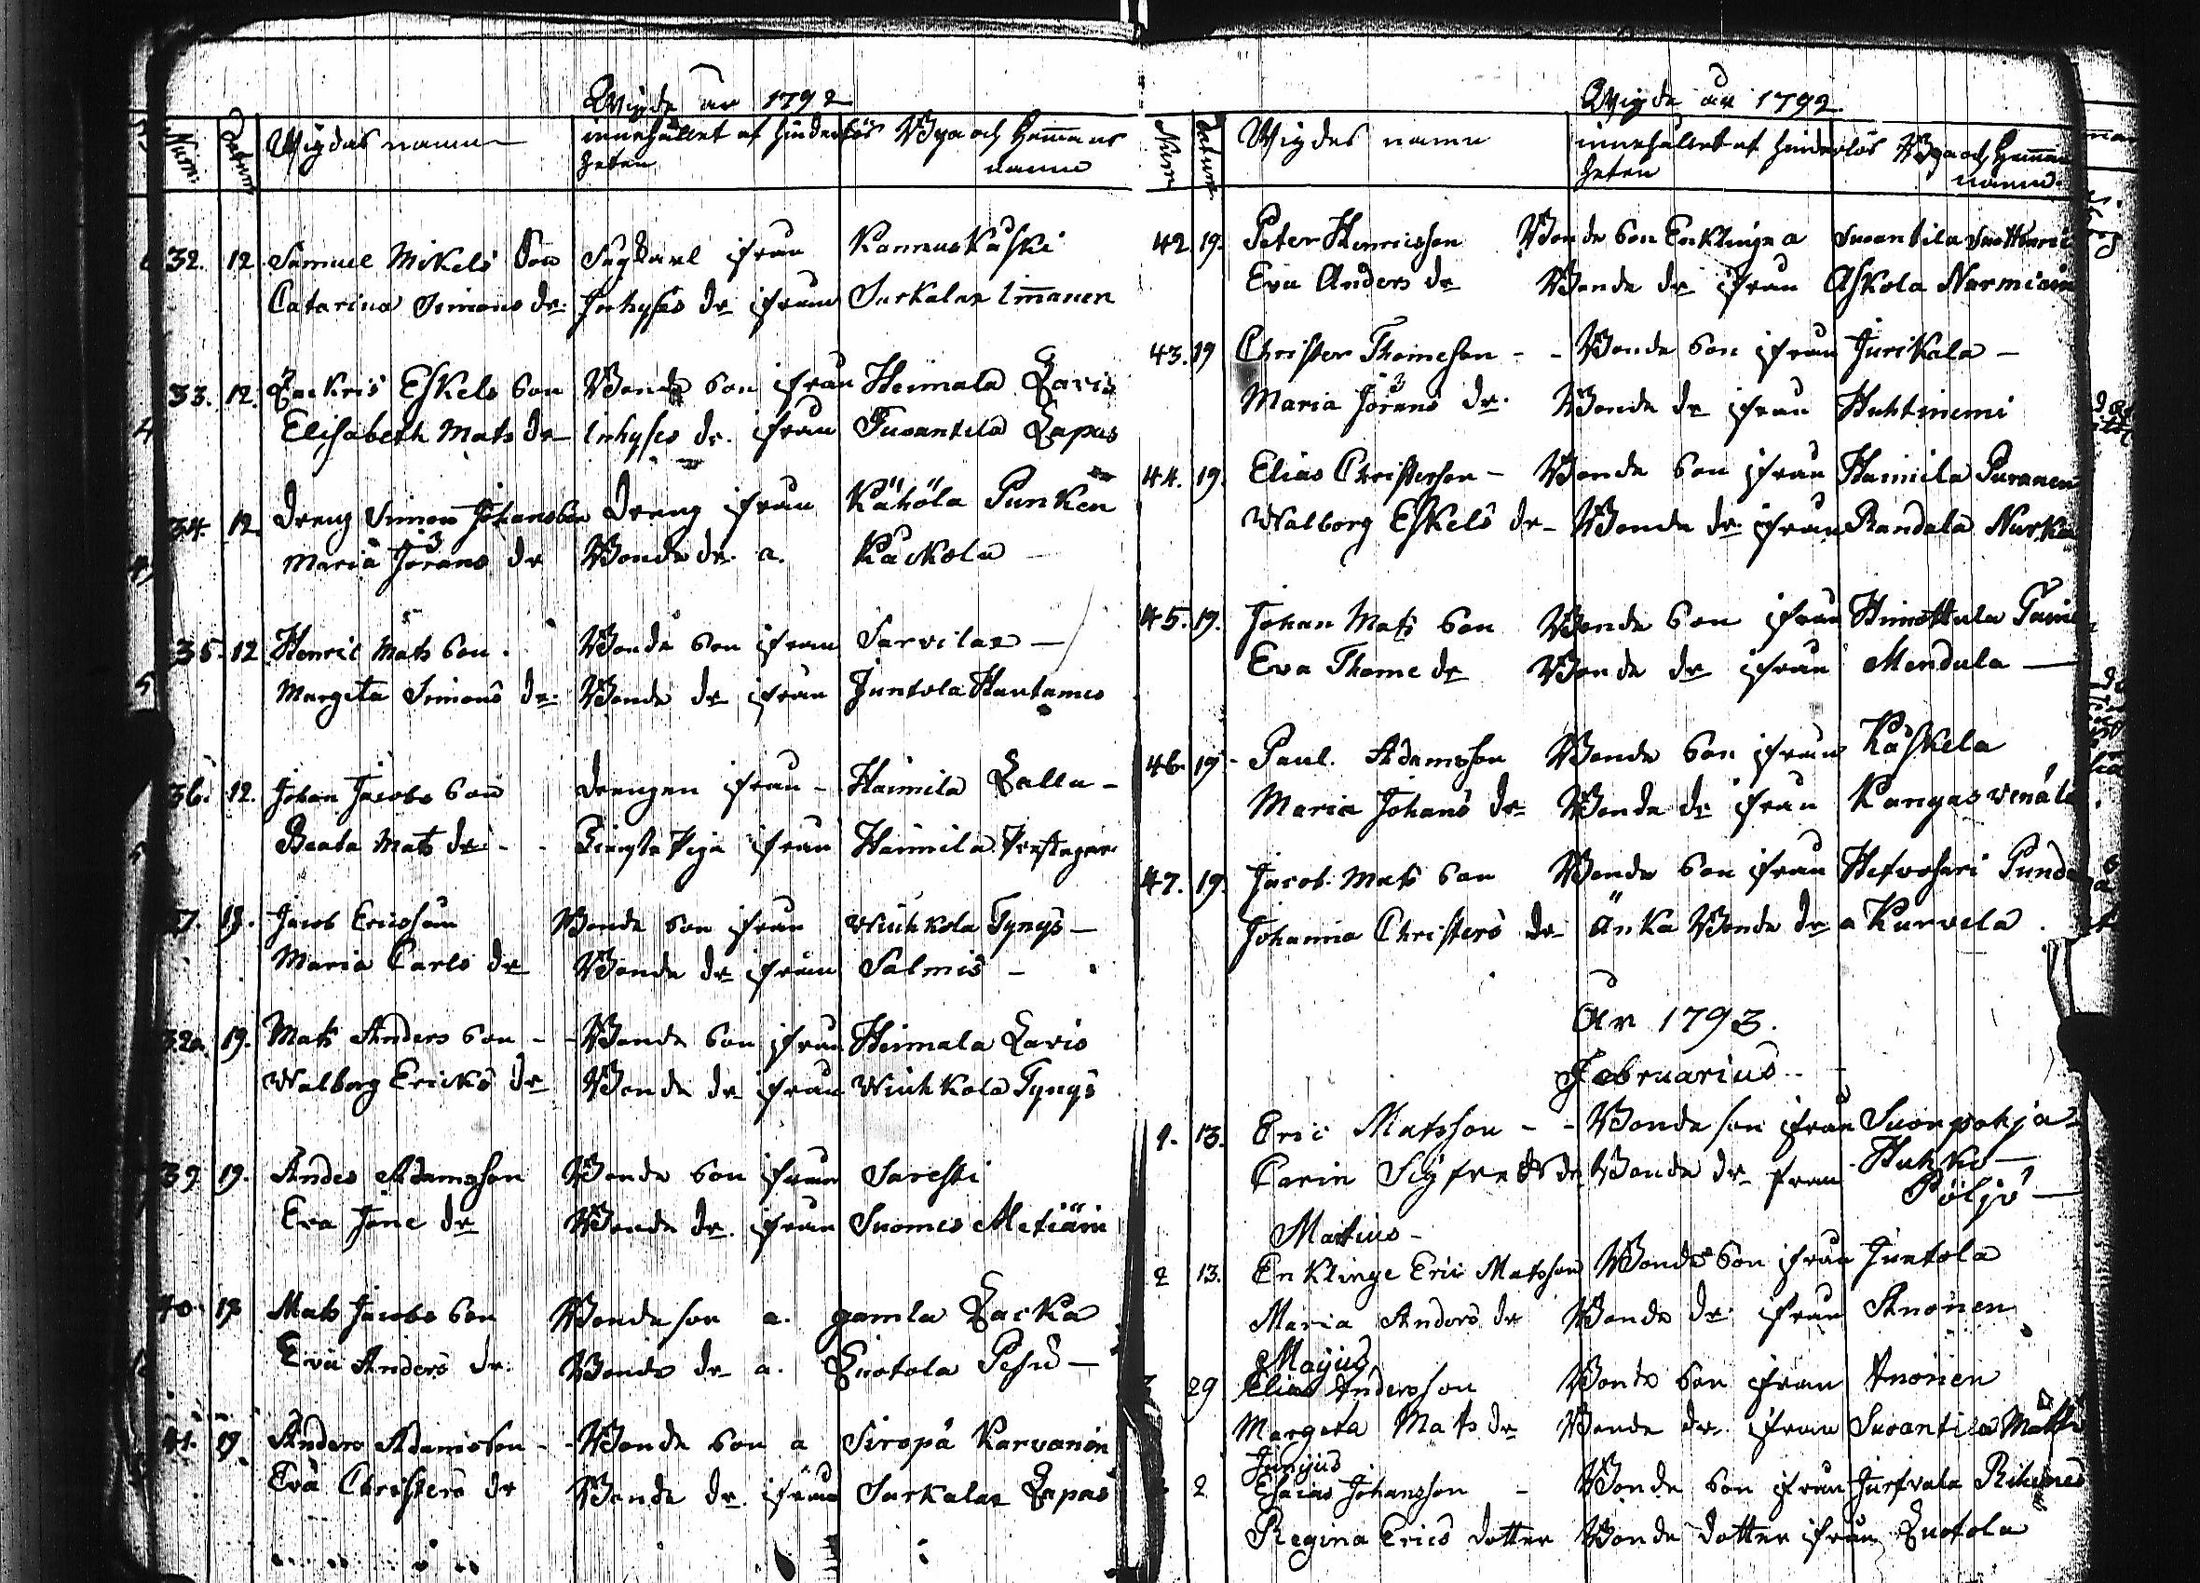 Wigde år 1792
Num: Datum Wigdas namn innehållet af hinderlös Bya och Hemans
heten namn
32. 12 Samuel Mikels Son Sugkarl ifrån Kannuskåski
Catarina Simons dr. Inhyses dr ifrån Sarkalax Immanen
33. 12. Zackris Eskels Son Bonde Son ifrån Heimala Lavis
Elisabeth Mats dr Inhyses dr. ifrån Suvantila Lapas
34. 12 Dreng Simon Johans Son Dreng ifrån Kähölä Punken
Maria Jörans dr Bonde dr. a. Käckölä
35. 12 Henric Mats Son. Bonde Son ifrån Sarvilax
Margeta Simons dr. Bonde dr ifrån Juntola Hautames
36. 12. Johan Jacobs Son drengen ifrån - Haimila Lalla -
Beata Mats dr - Piga ifrån Haimila
37. 19. Jacob Ericsson Bonde Son ifrån Wiuhkola Tynys
Maria Carls dr Bonde dr ifrån Salmis
19. Mats Anders Son - Bonde Son ifrån Heimala Lavis
Walborg Ericks dr Bonde dr ifrån Wiuhkola Tynys
39 19. Andes Adamsson Bonde Son ifrån Saresti
Eva Jöne dr Bonde dr. ifrån Suomes Metiäin
40. 19 Mats Jacobs Son Bonde son a. gamla Lacka
Eva Anders dr. Bonde dr a. Luotola Pesu
41. 19. Anders Adamsson - Bonde Son a Siropä Karvanen
Eva Christers dr Bonde dr. ifrån Sarkalax Lapas
Wigde år 1792.
Num Datum Wigdes namn innehållet af hinderlös Bya och Heman
heten namn.
42 19. Peter Henricsson Bonde Son Enklinge a Suvantila
Eva Anders dr Bonde dr ifrån Askola
43. 19 Christer Thomeson - - Bonde Son ifrån Jurikala
Maria Jörans dr. Bonde dr ifrån Huhtiniemi
44. 19. Elias Christersson - Bonde Son ifrån Haimila Puranen
Walborg Eskels dr Bonde dr. ifrån Randala
45. 19. Johan Mats Son Bonde Son ifrån Himottula
Eva Thome dr Bonde dr ifrån Mendula
46. 19. Paul. Adamsson Bonde Son ifrån Kåskela
Maria Johans dr Bonde dr ifrån
47. 19. Jacob Mats Son Bonde Son ifrån
Johanna Christers dr Änka Bonde dr a Kurvela
År 1793.
Februarius.
1. 13. Eric Matsson - - Bonde son ifrån Suonpohja
Carin Sigfreds dr Bonde dr från Huhko
Pöljö
Martius -
2 13. Enklinge Eric Matsson Bonde Son ifrån Juntola
Maria Anders dr Bonde dr: ifrån Anonen
Majus
29 Elias Andersson Bonde Son ifrån Anonen
Margeta Mats dr Bonde dr. ifrån Suvantila Matti
Junijus
2 Esaias Johansson - Bonde Son ifrån Jurvala
Regina Erics dotter Bonde dotter ifrån Luotola